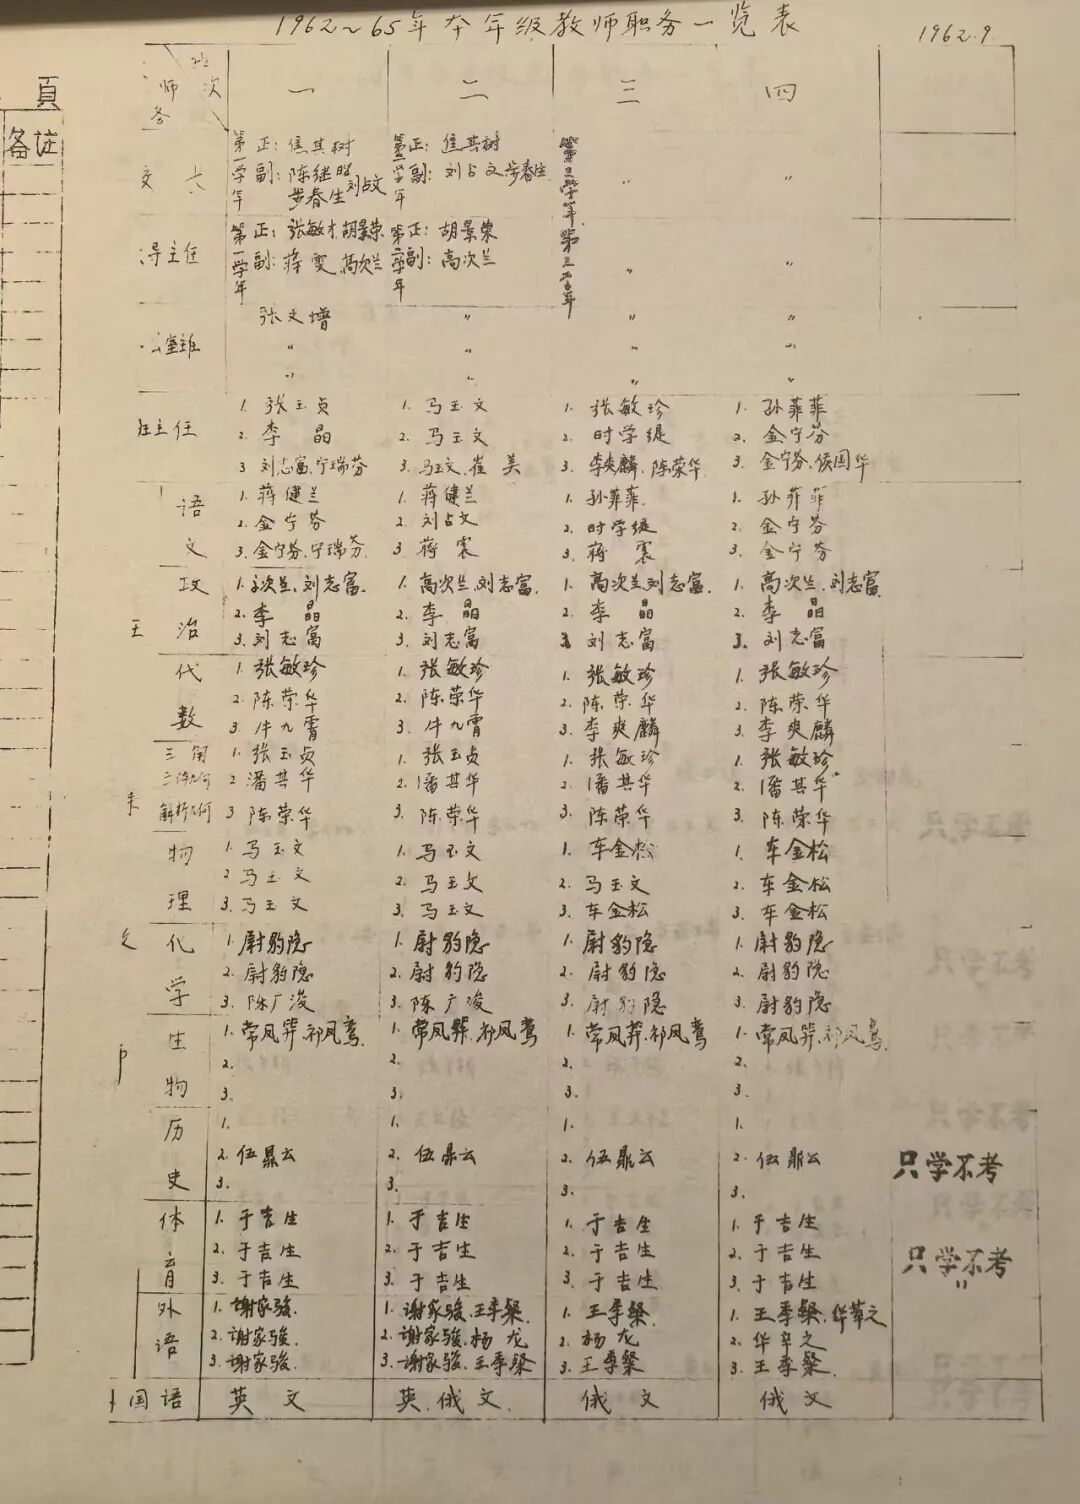 1962~65年本年级教师职务一览表
1962.9.
頁
备注
班次
师
务
一 二 三 四
第一学年 正: 焦其树 第二学年 正: 焦其树
副: 陈继昭 刘占文 副: 刘占文 步春生 〃 〃
步春生
导主任
第一学年 正: 张敏才 胡景荣 正: 胡景荣
副: 蒋雯 高次兰 副: 高次兰 〃 〃
张文增 〃 〃 〃
〃 〃 〃 〃
〃 〃 〃 〃
班主任
1. 张玉贞 1. 马玉文 1. 张敏珍 1. 孙菲菲
2. 李晶 2. 马玉文 2. 时学缇 2. 金宁芬
3 刘志富、宁瑞芬 3. 马玉文、崔美 3. 李爽麟、陈荣华 3. 金宁芬、侯国华
语文
1. 蒋健兰 1. 蒋健兰 1. 孙菲菲. 1. 孙菲菲
2. 金宁芬 2. 刘占文 2. 时学缇 2. 金宁芬
3. 金宁芬、宁瑞芬. 3. 蒋震 3. 蒋震 3. 金宁芬
政治
1. 高次兰、刘志富. 1. 高次兰、刘志富. 1. 高次兰、刘志富. 1. 高次兰、刘志富.
2. 李晶 2. 李晶 2. 李晶 2. 李晶
3. 刘志富 3. 刘志富 3. 刘志富 3. 刘志富
代数
1. 张敏珍 1. 张敏珍 1. 张敏珍 1. 张敏珍
2. 陈荣华 2. 陈荣华 2. 陈荣华 2. 陈荣华
3. 牛九霄 3. 牛九霄 3. 李爽麟 3. 李爽麟
三角
解析几何
1. 张玉贞 1. 张玉贞 1. 张敏珍 1. 张敏珍
2 潘其华 2. 潘其华 2. 潘其华 2. 潘其华
3 陈荣华 3. 陈荣华 3. 陈荣华 3. 陈荣华
物理
1. 马玉文 1. 马玉文 1. 车金松 1. 车金松
2. 马玉文 2. 马玉文 2. 马玉文 2. 车金松
3. 马玉文 3. 马玉文 3. 车金松 3. 车金松
化学
1. 尉豹隐 1. 尉豹隐 1. 尉豹隐 1. 尉豹隐
2. 尉豹隐 2. 尉豹隐 2. 尉豹隐 2. 尉豹隐
3. 陈广浚 3. 陈广浚 3. 尉豹隐 3. 尉豹隐
生物
1. 常凤羿、祁凤鸾. 1. 常凤羿、祁凤鸾 1. 常凤羿、祁凤鸾 1. 常凤羿、祁凤鸾.
2. 2. 2. 2.
3. 3. 3. 3.
历史
1. 1. 1. 1.
2. 伍鼎云 2. 伍鼎云 2. 伍鼎云 2. 伍鼎云 只学不考
3. 3. 3. 3.
体育
1. 于吉生 1. 于吉生 1. 于吉生 1. 于吉生
2. 于吉生 2. 于吉生 2. 于吉生 2. 于吉生 只学不考
3. 于吉生 3. 于吉生 3. 于吉生 3. 于吉生 〃
外语
1. 谢家骏. 1. 谢家骏、王季粲. 1. 王季粲. 1. 王季粲、华莘之
2. 谢家骏. 2. 谢家骏、杨龙 2. 杨龙 2. 华莘之
3. 谢家骏. 3. 谢家骏、王季粲 3. 王季粲 3. 王季粲
国语 英文 英、俄文 俄文 俄文